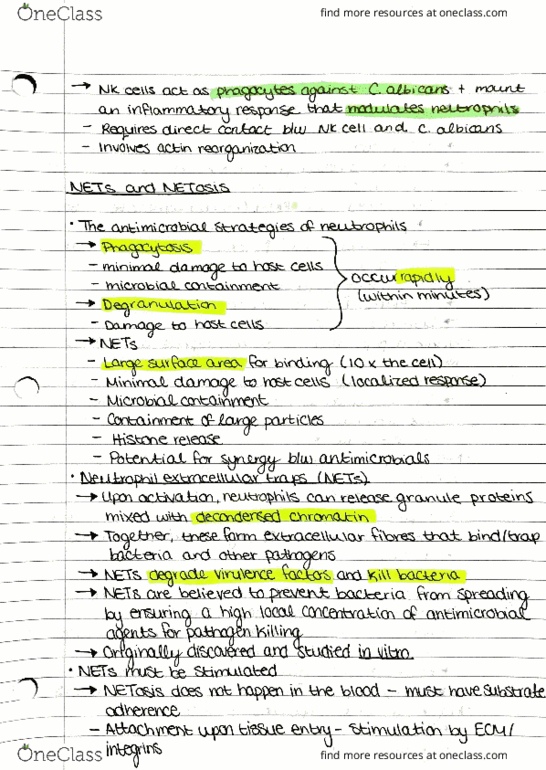 OneClass
find more resources at oneclass.com
→ NK cells act as phagocytes against C. albicans + mount
an inflammatory response that modulates neutrophils
- Requires direct contact b/w NK cell and C. albicans
- Involves actin reorganization
NETs and NETosis
· The antimicrobial strategies of neutrophils
→ Phagocytosis
- minimal damage to host cells
- microbial containment
→ Degranulation
- Damage to host cells
occur rapidly
(within minutes)
→ NETs
- Large surface area for binding (10x the cell)
- Minimal damage to host cells (localized response)
- Microbial containment
- Containment of large particles
- Histone release
- Potential for synergy b/w antimicrobials
· Neutrophil extracellular traps (NETs)
→ Upon activation, neutrophils can release granule proteins
mixed with decondensed chromatin
→ Together, these form extracellular fibres that bind/trap
bacteria and other pathogens
→ NETs degrade virulence factors and kill bacteria
→ NETs are believed to prevent bacteria from spreading
by ensuring a high local concentration of antimicrobial
agents for pathogen killing
→ Originally discovered and studied in vitro
· NETs must be stimulated
→ NETosis does not happen in the blood - must have substrate
adherence
- Attachment upon tissue entry - stimulation by ECM/
integrins
OneClass
find more resources at oneclass.com